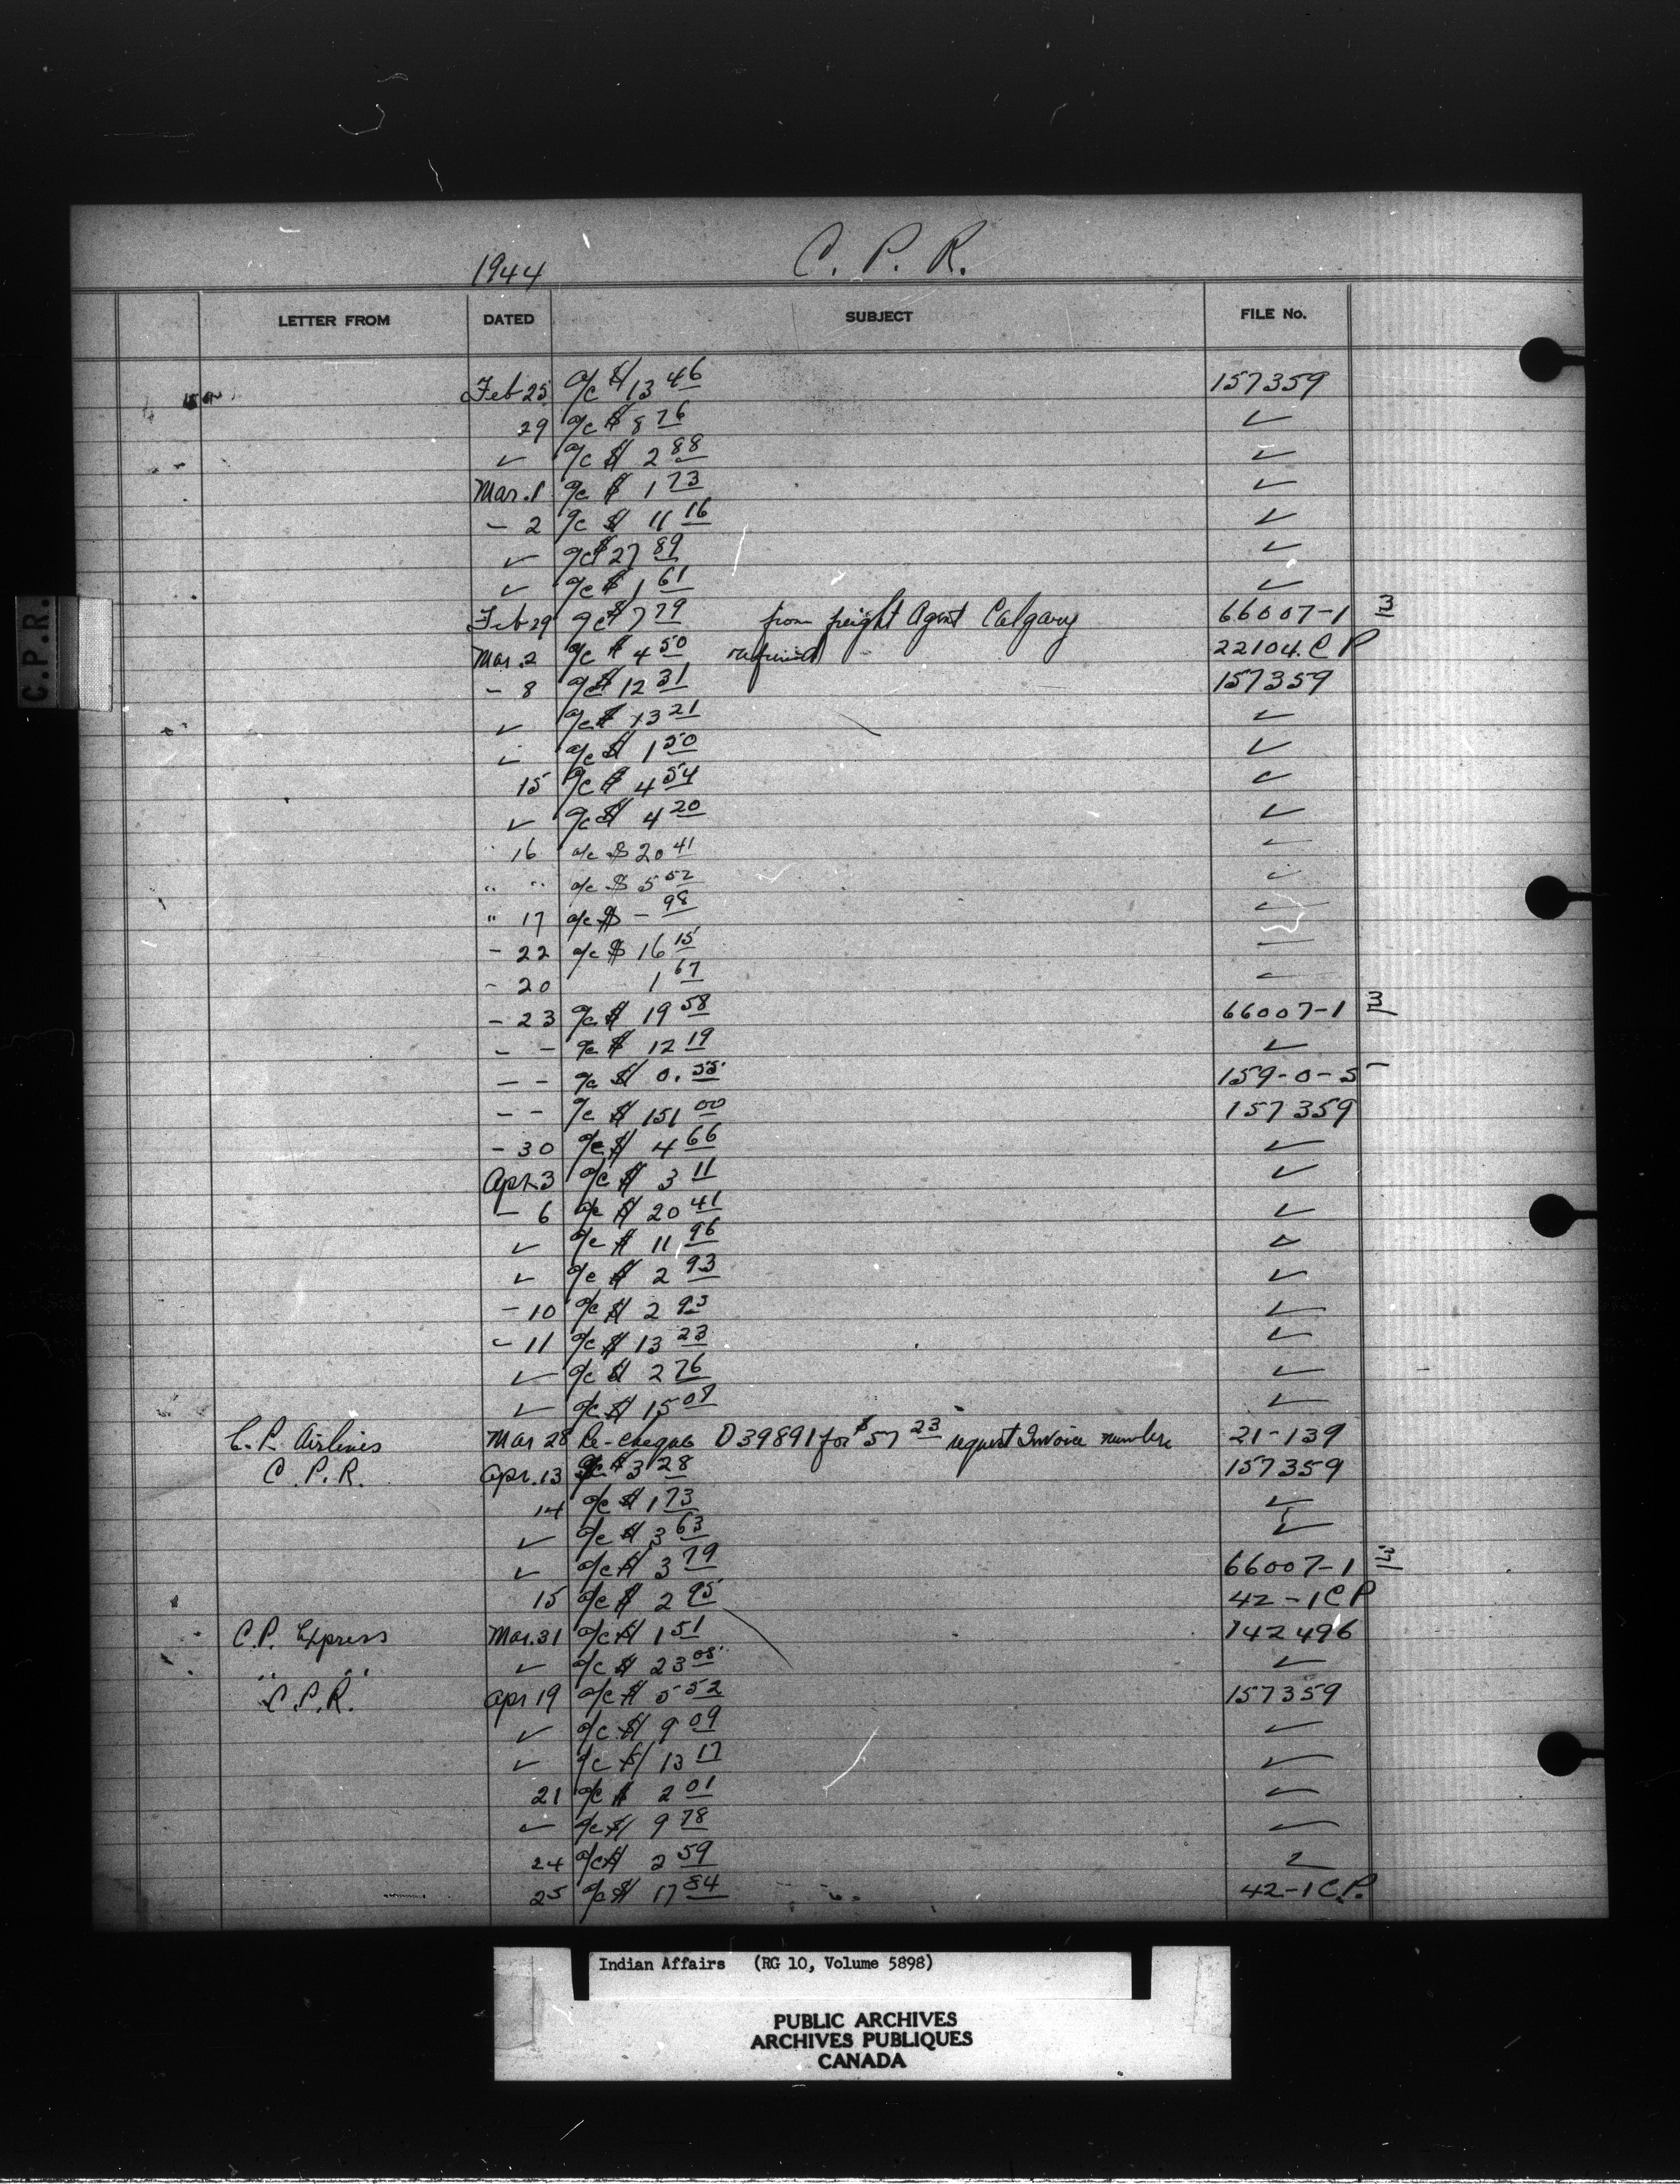 1944 C. P. R.
LETTER FROM DATED SUBJECT FILE No.
Feb 25 a/c $13 46 157359
29 a/c $ 8 76 ✓
✓ a/c $ 2 88 ✓
Mar. 1 a/c $ 1 73 ✓
- 2 a/c $ 11 16 ✓
✓ a/c $ 27 89 ✓
✓ a/c $ 1 61 ✓
Feb 29 a/c $ 7 79 from freight Agent Calgary 66007-1 3
C.P.R.
Mar. 2 a/c $ 4 50 refund 22104. C P
- 8 a/c $ 12 31 157359
✓ a/c $ 13 21 ✓
✓ a/c $ 1 50 ✓
15 a/c $ 4 54 ✓
✓ a/c $ 4 20 ✓
" 16 a/c $ 20 41 ✓
" " a/c $ 5 52 ✓
" 17 a/c $ - 98 ✓
- 22 a/c $ 16 15 —
- 20 1 67 —
- 23 a/c $ 19 58 66007-1 3
- - a/c $ 12 19 ✓
- - a/c $ 0. 55 159-0-5
- - a/c $ 151 00 157359
- 30 a/c $ 4 66 ✓
Apr. 3 a/c $ 3 11 ✓
- 6 a/c $ 20 41 ✓
✓ a/c $ 11 96 ✓
✓ a/c $ 2 93 ✓
- 10 a/c $ 2 93 ✓
- 11 a/c $ 13 23 ✓
✓ a/c $ 2 76 ✓
✓ a/c $ 15 07 ✓
C. P. Airlines Mar 28 Re-cheque D39891 for $57 23 request Invoice numbers 21-139
C. P. R. Apr. 13 a/c $ 3 28 157359
14 a/c $ 1 73 ✓
✓ a/c $ 3 63 ✓
✓ a/c $ 3 79 66007-1 3
15 a/c $ 2 95 42-1 C P
C. P. Express Mar. 31 a/c $ 1 51 142496
" " ✓ a/c $ 23 08 ✓
C. P. R. Apr 19 a/c $ 5 52 157359
✓ a/c $ 9 09 ✓
✓ a/c $ 13 17 ✓
21 a/c $ 2 01 ✓
✓ a/c $ 9 78 ✓
24 a/c $ 2 59 ✓
25 a/c $ 17 84 42-1 C.P.
Indian Affairs (RG 10, Volume 5898)
PUBLIC ARCHIVES
ARCHIVES PUBLIQUES
CANADA